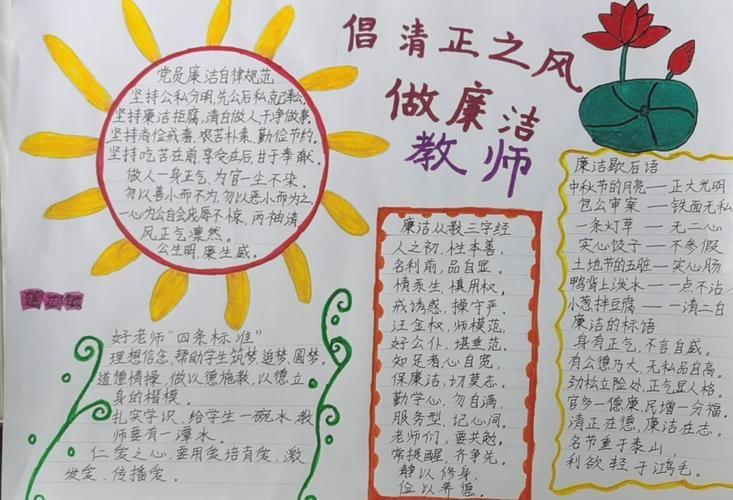 倡清正之风
做廉洁
教师
党员廉洁自律规范
坚持公私分明,先公后私,克己奉公。
坚持廉洁拒腐,清白做人,干净做事。
坚持尚俭戒奢,艰苦朴素,勤俭节约。
坚持吃苦在前,享受在后,甘于奉献。
做人一身正气,为官一尘不染。
勿以善小而不为,勿以恶小而为之,
一心为公自会宠辱不惊,两袖清
风正气凛然。
公生明,廉生威。
好老师"四条标准"
理想信念,帮助学生筑梦,追梦,圆梦。
道德情操,做以德施教,以德立
身的楷模。
扎实学识,给学生一碗水,教
师要有一潭水。
仁爱之心,要用爱培育爱、激
发爱、传播爱。
廉洁从教三字经
人之初,性本善,
名利前,品自显。
情系生,慎用权,
戒诱惑,操守严。
汪金权,师模范,
好公仆,堪垂范。
知足者心自宽,
保廉洁,切莫忘。
勤学心,勿自满,
服务型,记心间。
老师们,要共勉,
常提醒,齐争先。
静以修身,
俭以养德。
廉洁歇后语
中秋节的月亮——正大光明
包公审案——铁面无私
一条灯草——无二心
实心饺子——不参假
土地爷的五脏——实心肠
鸭背上泼水——一点不沾
小葱拌豆腐——一清二白
廉洁的标语
身有正气,不言自威。
有公德乃大,无私品自高。
劲松立险处,正气显人格。
官多一德廉,民增一分福。
清正在德,廉洁在志。
名节重于泰山,
利欲轻于鸿毛。